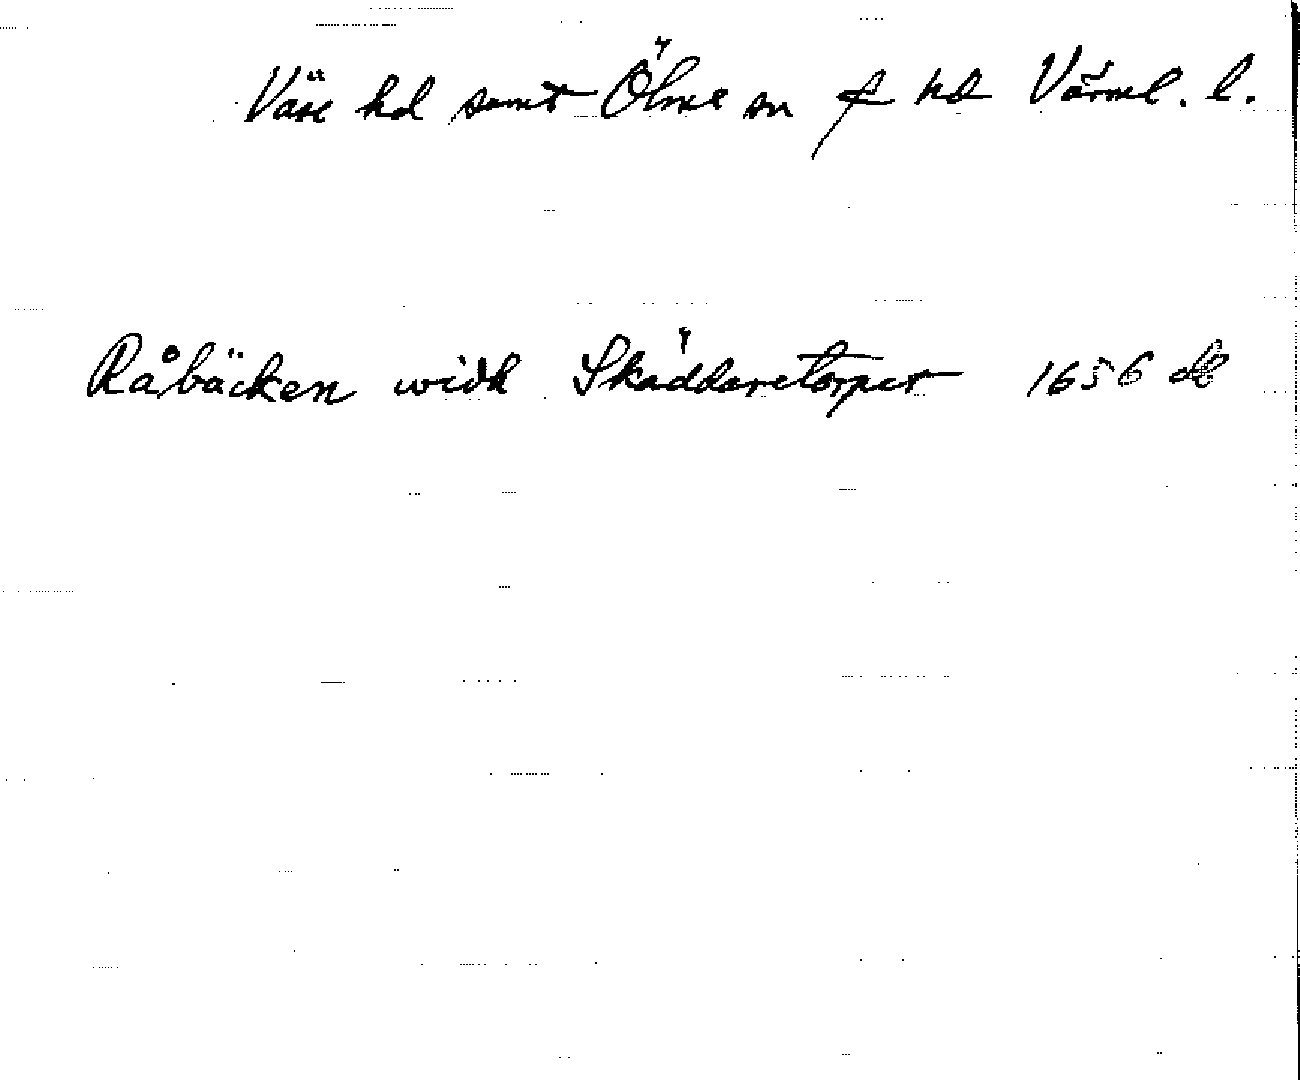 Väse hd samt Ölme sn f hd Värml. l.
Råbäcken widh Skäddaretorper 1656 dk